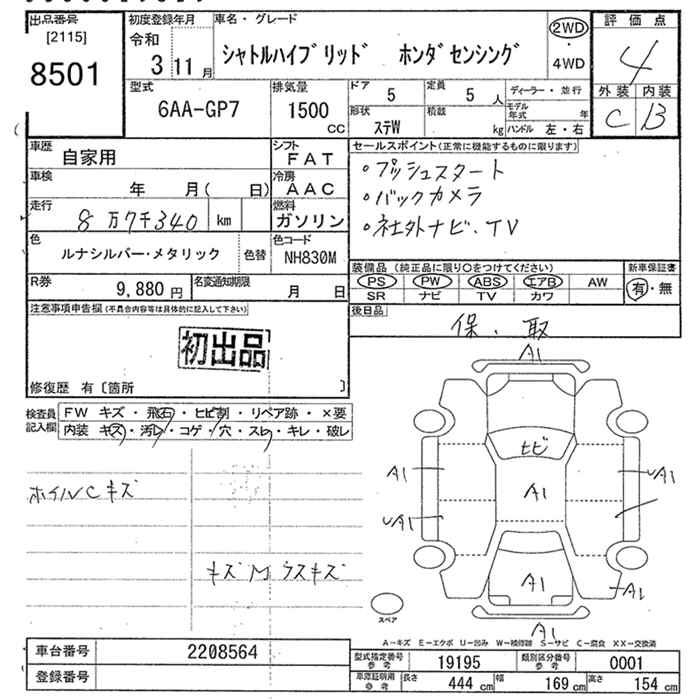 出品番号
[2115]
8501
初度登録年月
令和
3 11 月
車名・グレード
シャトルハイブリッド ホンダセンシング
2WD
・
4WD
評価点
4
外装 内装
C B
型式
6AA-GP7
排気量
1500
CC
ドア
5
定員
5 人
形状
ステW
積載
kg
ディーラー・並行
モデル年式 年
ハンドル 左・右
車歴
自家用
シフト
FAT
車検
年 月( 日)
冷房
AAC
走行
8 万7千340 km
燃料
ガソリン
色
ルナシルバー・メタリック
色替
色コード
NH830M
R券
9,880 円
名変通知期限
月 日
セールスポイント(正常に機能するものに限ります)
・プッシュスタート
・バックカメラ
・社外ナビ・TV
装備品(純正品に限り○をつけてください)
PS PW ABS エアB AW
SR ナビ TV カワ
新車保証書
有・無
後日品
保、取
注意事項申告欄(不具合内容等は具体的に記入して下さい)
初出品
修復歴 有〔箇所 〕
検査員記入欄
FW キズ・飛石・ヒビ割・リペア跡・×要
内装 キズ・汚レ・コゲ・穴・スレ・キレ・破レ
ホイルCキズ
キズMウスキズ
A1
ヒビ
A1
A1
A1
A1
A1
A1
A1
A1
スペア
A-キズ E-エクボ U-凹み W-補修跡 S-サビ C-腐食 XX-交換済
車台番号
2208564
登録番号
型式指定番号
参考
19195
類別区分番号
参考
0001
車庫証明用
参考
長さ 444 cm 幅 169 cm 高さ 154 cm